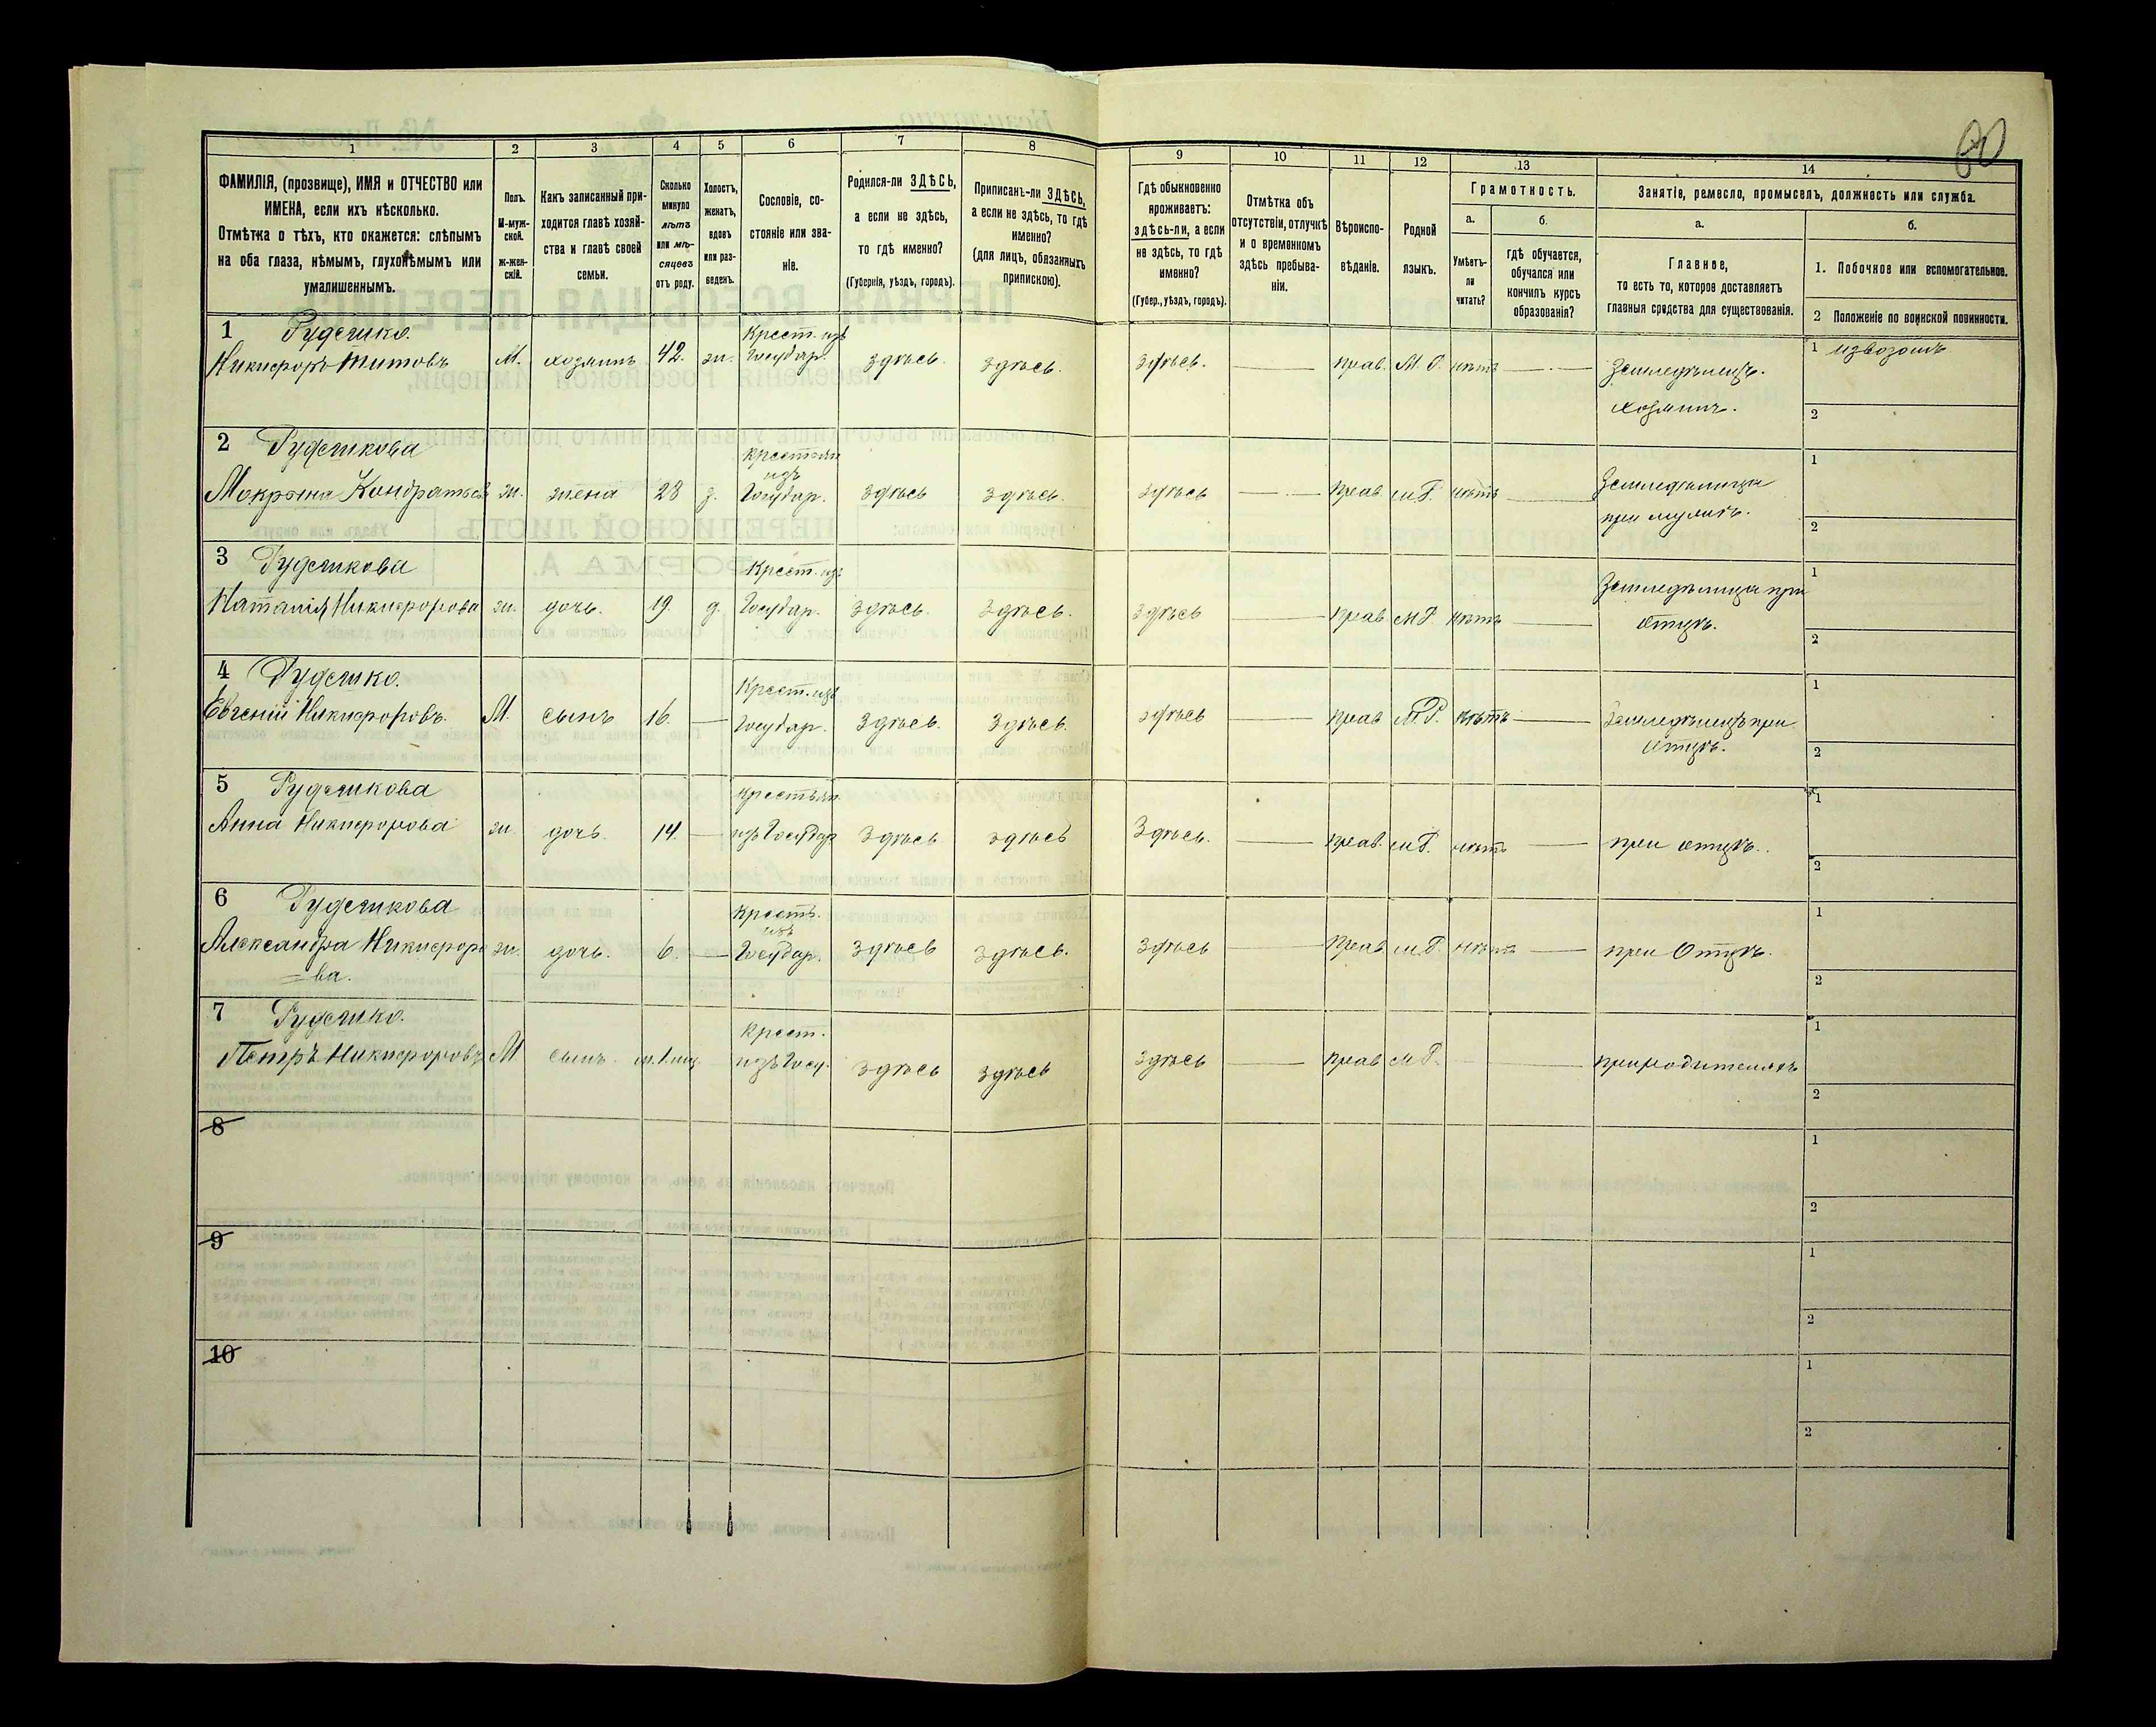 80
1 2 3 4 5 6 7 8 9 10 11 12 13 14
ФАМИЛІЯ, (прозвище), ИМЯ и ОТЧЕСТВО или
ИМЕНА, если ихъ нѣсколько.
Отмѣтка о тѣхъ, кто окажется: слѣпымъ
на оба глаза, нѣмымъ, глухонѣмымъ или
умалишеннымъ.
Полъ.
М-муж-
ской.
ж-жен-
скій.
Какъ записанный при-
ходится главѣ хозяй-
ства и главѣ своей
семьи.
Сколько
минуло
лѣтъ
или мѣ-
сяцевъ
отъ роду.
Холостъ,
женатъ,
вдовъ
или раз-
веденъ.
Сословіе, со-
стояніе или зва-
ніе.
Родился-ли ЗДѢСЬ,
а если не здѣсь,
то гдѣ именно?
(Губернія, уѣздъ, городъ).
Приписанъ-ли ЗДѢСЬ,
а если не здѣсь, то гдѣ
именно?
(для лицъ, обязанныхъ
припискою).
Гдѣ обыкновенно
проживаетъ:
здѣсь-ли, а если
не здѣсь, то гдѣ
именно?
(Губер., уѣздъ, городъ).
Отмѣтка объ
отсутствіи, отлучкѣ
и о временномъ
здѣсь пребыва-
ніи.
Вѣроиспо-
вѣданіе.
Родной
языкъ.
Грамотность.
а. б.
Умѣетъ-
ли
читать?
гдѣ обучается,
обучался или
кончилъ курсъ
образованія?
Занятіе, ремесло, промыселъ, должность или служба.
а. б.
Главное,
то есть то, которое доставляетъ
главныя средства для существованія.
1. Побочное или вспомогательное.
2 Положеніе по воинской повинности.
1 Крест. изъ
Никифоръ Титовъ М. хозяинъ 42. ж. Государ. здѣсь. здѣсь. здѣсь. — прав. М. Р. нѣтъ — Земледѣлецъ. 1 извозомъ
хозяинъ. 2
2 крестьян 1
изъ
Кондратьев ж. жена 28 з. Государ. здѣсь здѣсь. здѣсь — прав м Р. нѣтъ — Земледѣлица
при мужѣ. 2
3 Крест. изъ 1
Наталія Никифорова ж. дочь. 19. д. Государ. здѣсь. здѣсь. здѣсь — прав М Р. нѣтъ — Земледѣлица при
отцѣ. 2
4 Крест. изъ 1
Евгеній Никифоровъ. М. сынъ 16. — Государ. здѣсь. здѣсь. здѣсь — прав М. Р. нѣтъ — Земледѣлецъ при
отцѣ. 2
5 крестьян. 1
Анна Никифорова ж. дочь. 14. — изъ Государ здѣсь здѣсь Здѣсь. — прав. м Р. нѣтъ — при отцѣ. 2
6 крестъ. 1
изъ
Александра Никифоро ж. дочь. 6. — Государ. здѣсь здѣсь. здѣсь — прав м Р. нѣтъ — при Отцѣ.
=ва. 2
7 крест. 1
Петръ Никифоровъ М сынъ изъ Госу. здѣсь здѣсь здѣсь — прав М Р. — природителяхъ 2
8 1
2
9 1
2
10 1
2